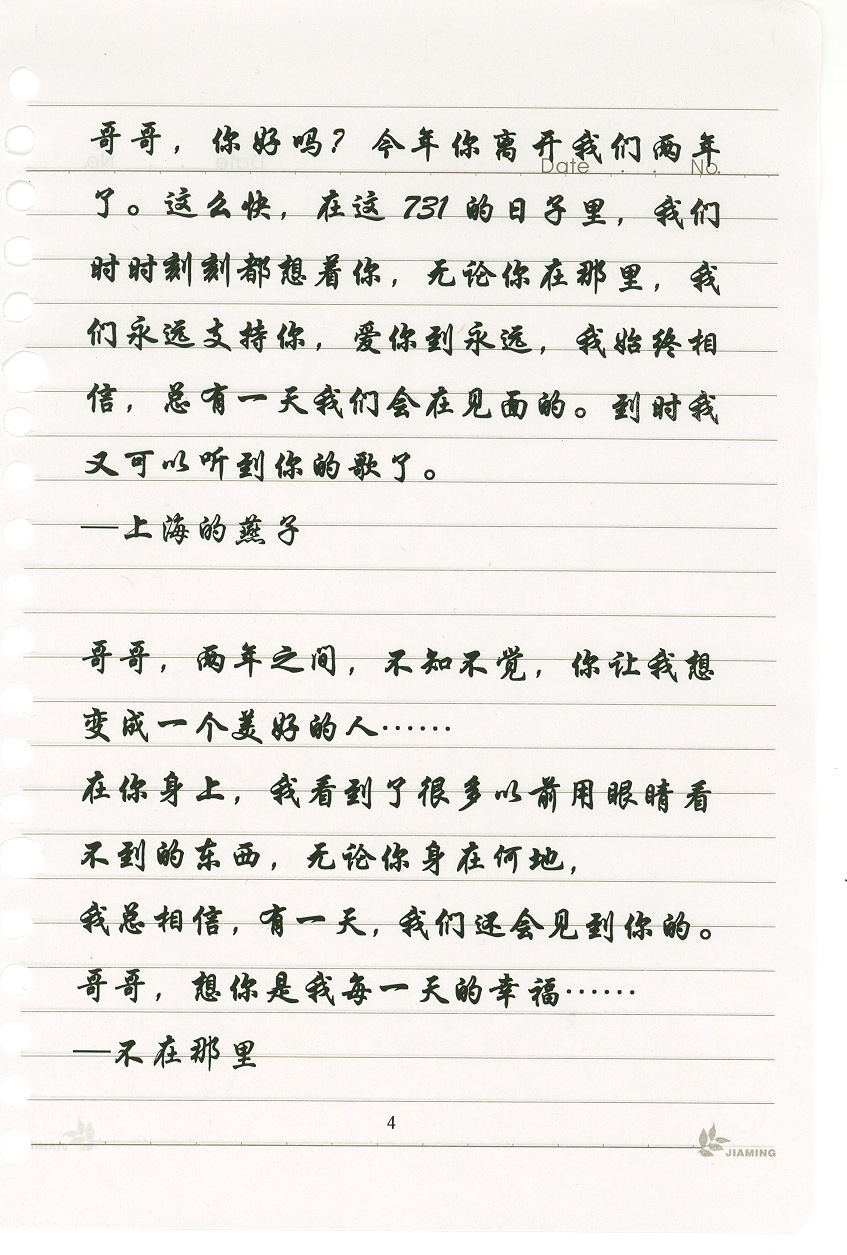 哥哥，你好吗？今年你离开我们两年
Date . . No.
了。这么快，在这 731 的日子里，我们
时时刻刻都想着你，无论你在那里，我
们永远支持你，爱你到永远，我始终相
信，总有一天我们会在见面的。到时我
又可以听到你的歌了。
—上海的燕子
哥哥，两年之间，不知不觉，你让我想
变成一个美好的人……
在你身上，我看到了很多以前用眼睛看
不到的东西，无论你身在何地，
我总相信，有一天，我们还会见到你的。
哥哥，想你是我每一天的幸福……
—不在那里
4
JIAMING